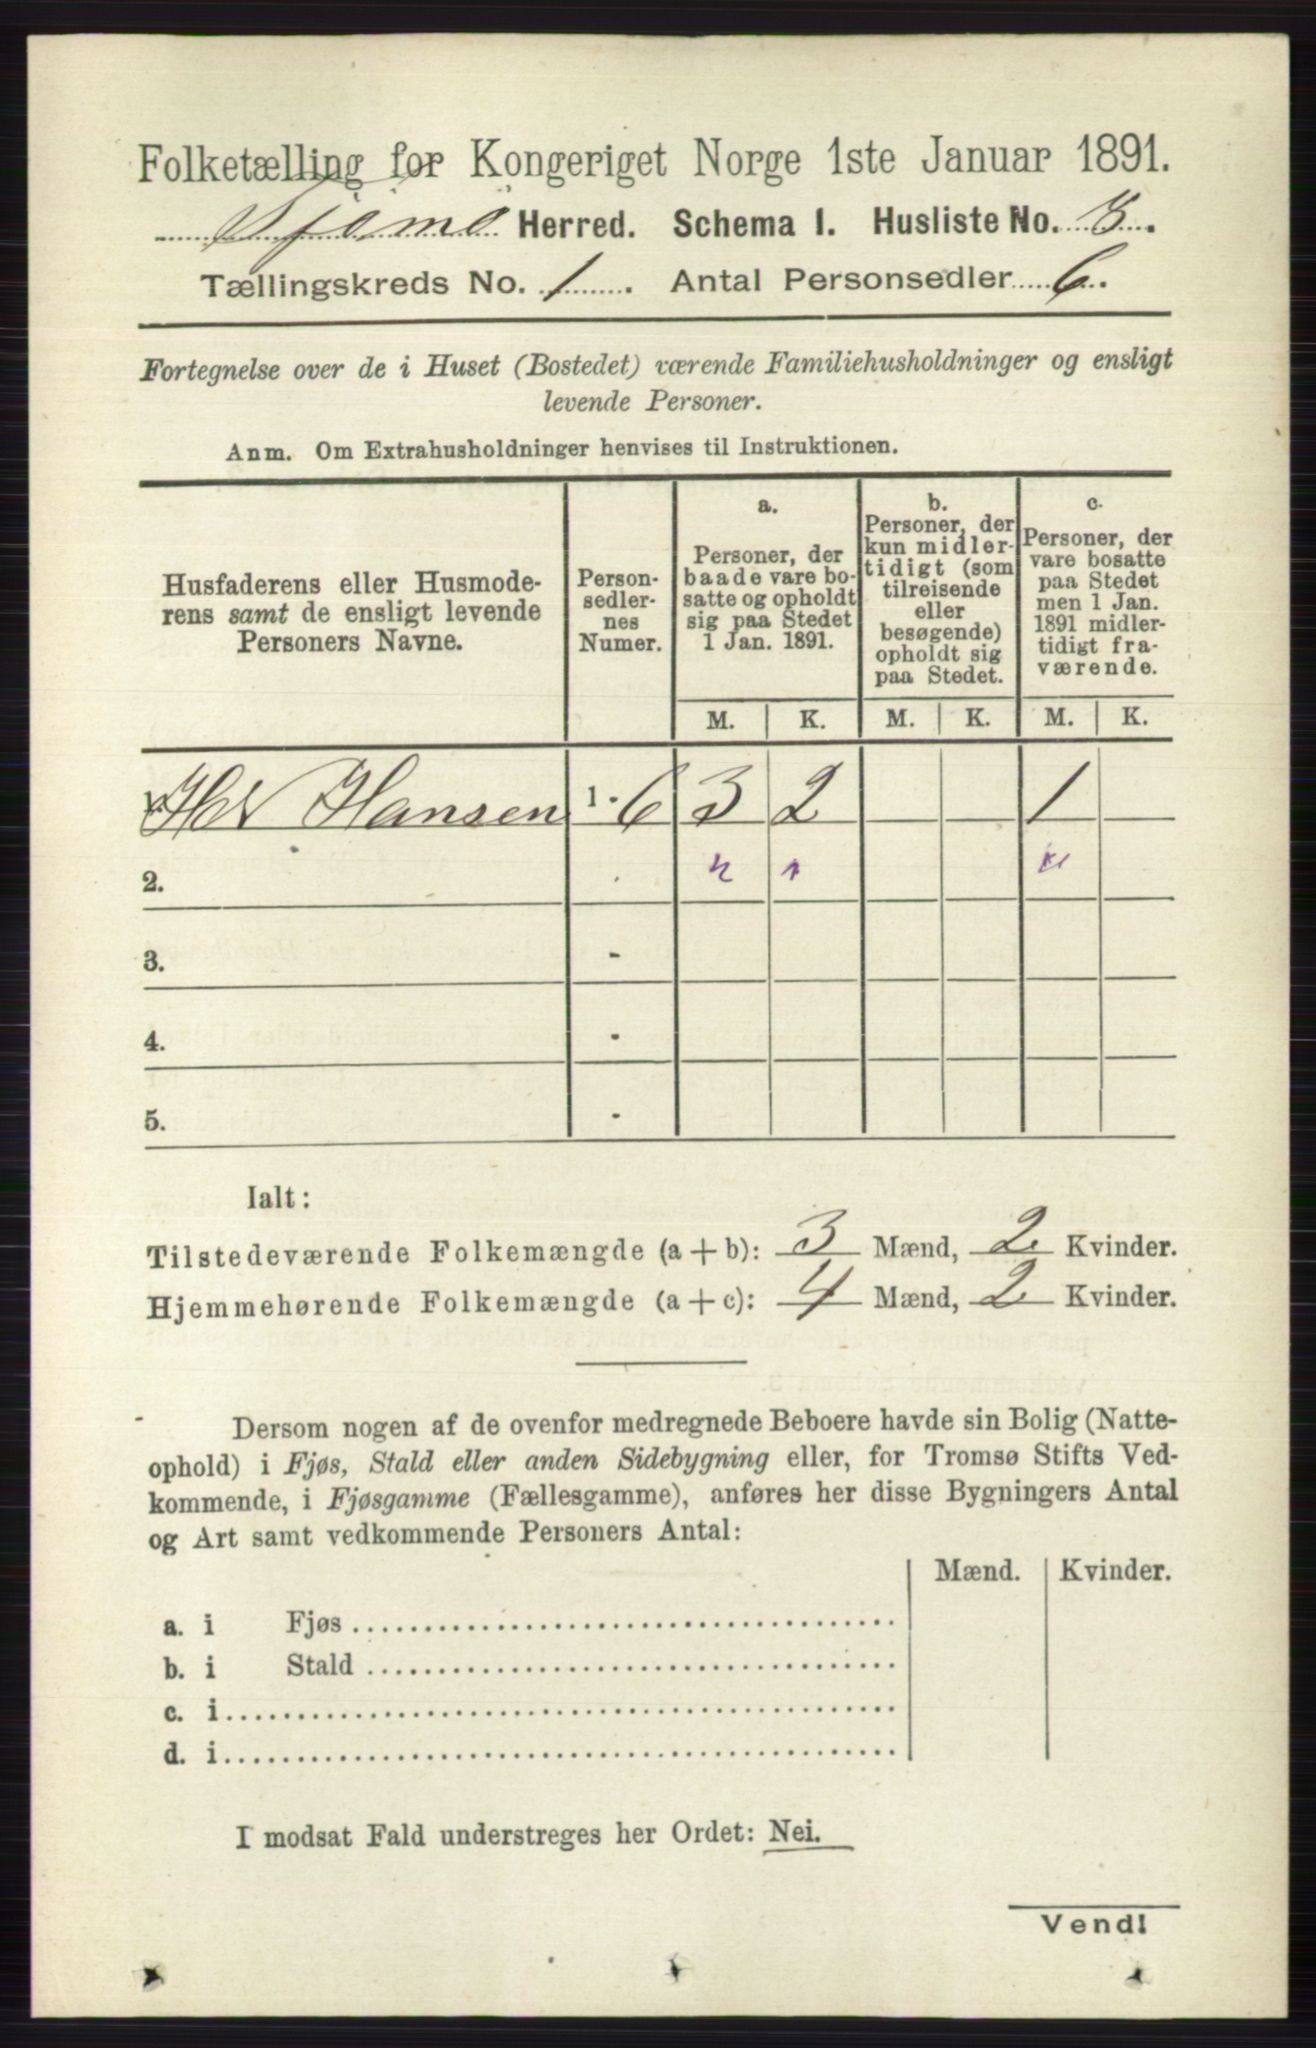 Folketælling for Kongeriget Norge 1ste Januar 1891.
Tjømø Herred. Schema I. Husliste No. 8.
Tællingskreds No. 1. Antal Personsedler 6.
Fortegnelse over de i Huset (Bostedet) værende Familiehusholdninger og ensligt
levende Personer.
Anm. Om Extrahusholdninger henvises til Instruktionen.
Husfaderens eller Husmode-
rens samt de ensligt levende
Personers Navne.
Person-
sedler-
nes
Numer.
a.
Personer, der
baade vare bo-
satte og opholdt
sig paa Stedet
1 Jan. 1891.
b.
Personer, der
kun midler-
tidigt (som
tilreisende
eller
besøgende)
opholdt sig
paa Stedet.
c.
Personer, der
vare bosatte
paa Stedet
men 1 Jan.
1891 midler-
tidigt fra-
værende.
M. K. M. K. M. K.
Hansen 1 - 6 3 2 1
2.
3. -
4. -
5. -
Ialt:
Tilstedeværende Folkemængde (a + b): 3 Mænd, 2 Kvinder.
Hjemmehørende Folkemængde (a + c): 4 Mænd, 2 Kvinder.
Dersom nogen af de ovenfor medregnede Beboere havde sin Bolig (Natte-
ophold) i Fjøs, Stald eller anden Sidebygning eller, for Tromsø Stifts Ved-
kommende, i Fjøsgamme (Fællesgamme), anføres her disse Bygningers Antal
og Art samt vedkommende Personers Antal:
Mænd. Kvinder.
a. i Fjøs
b. i Stald
c. i
d. i
I modsat Fald understreges her Ordet: Nei.
Vend!